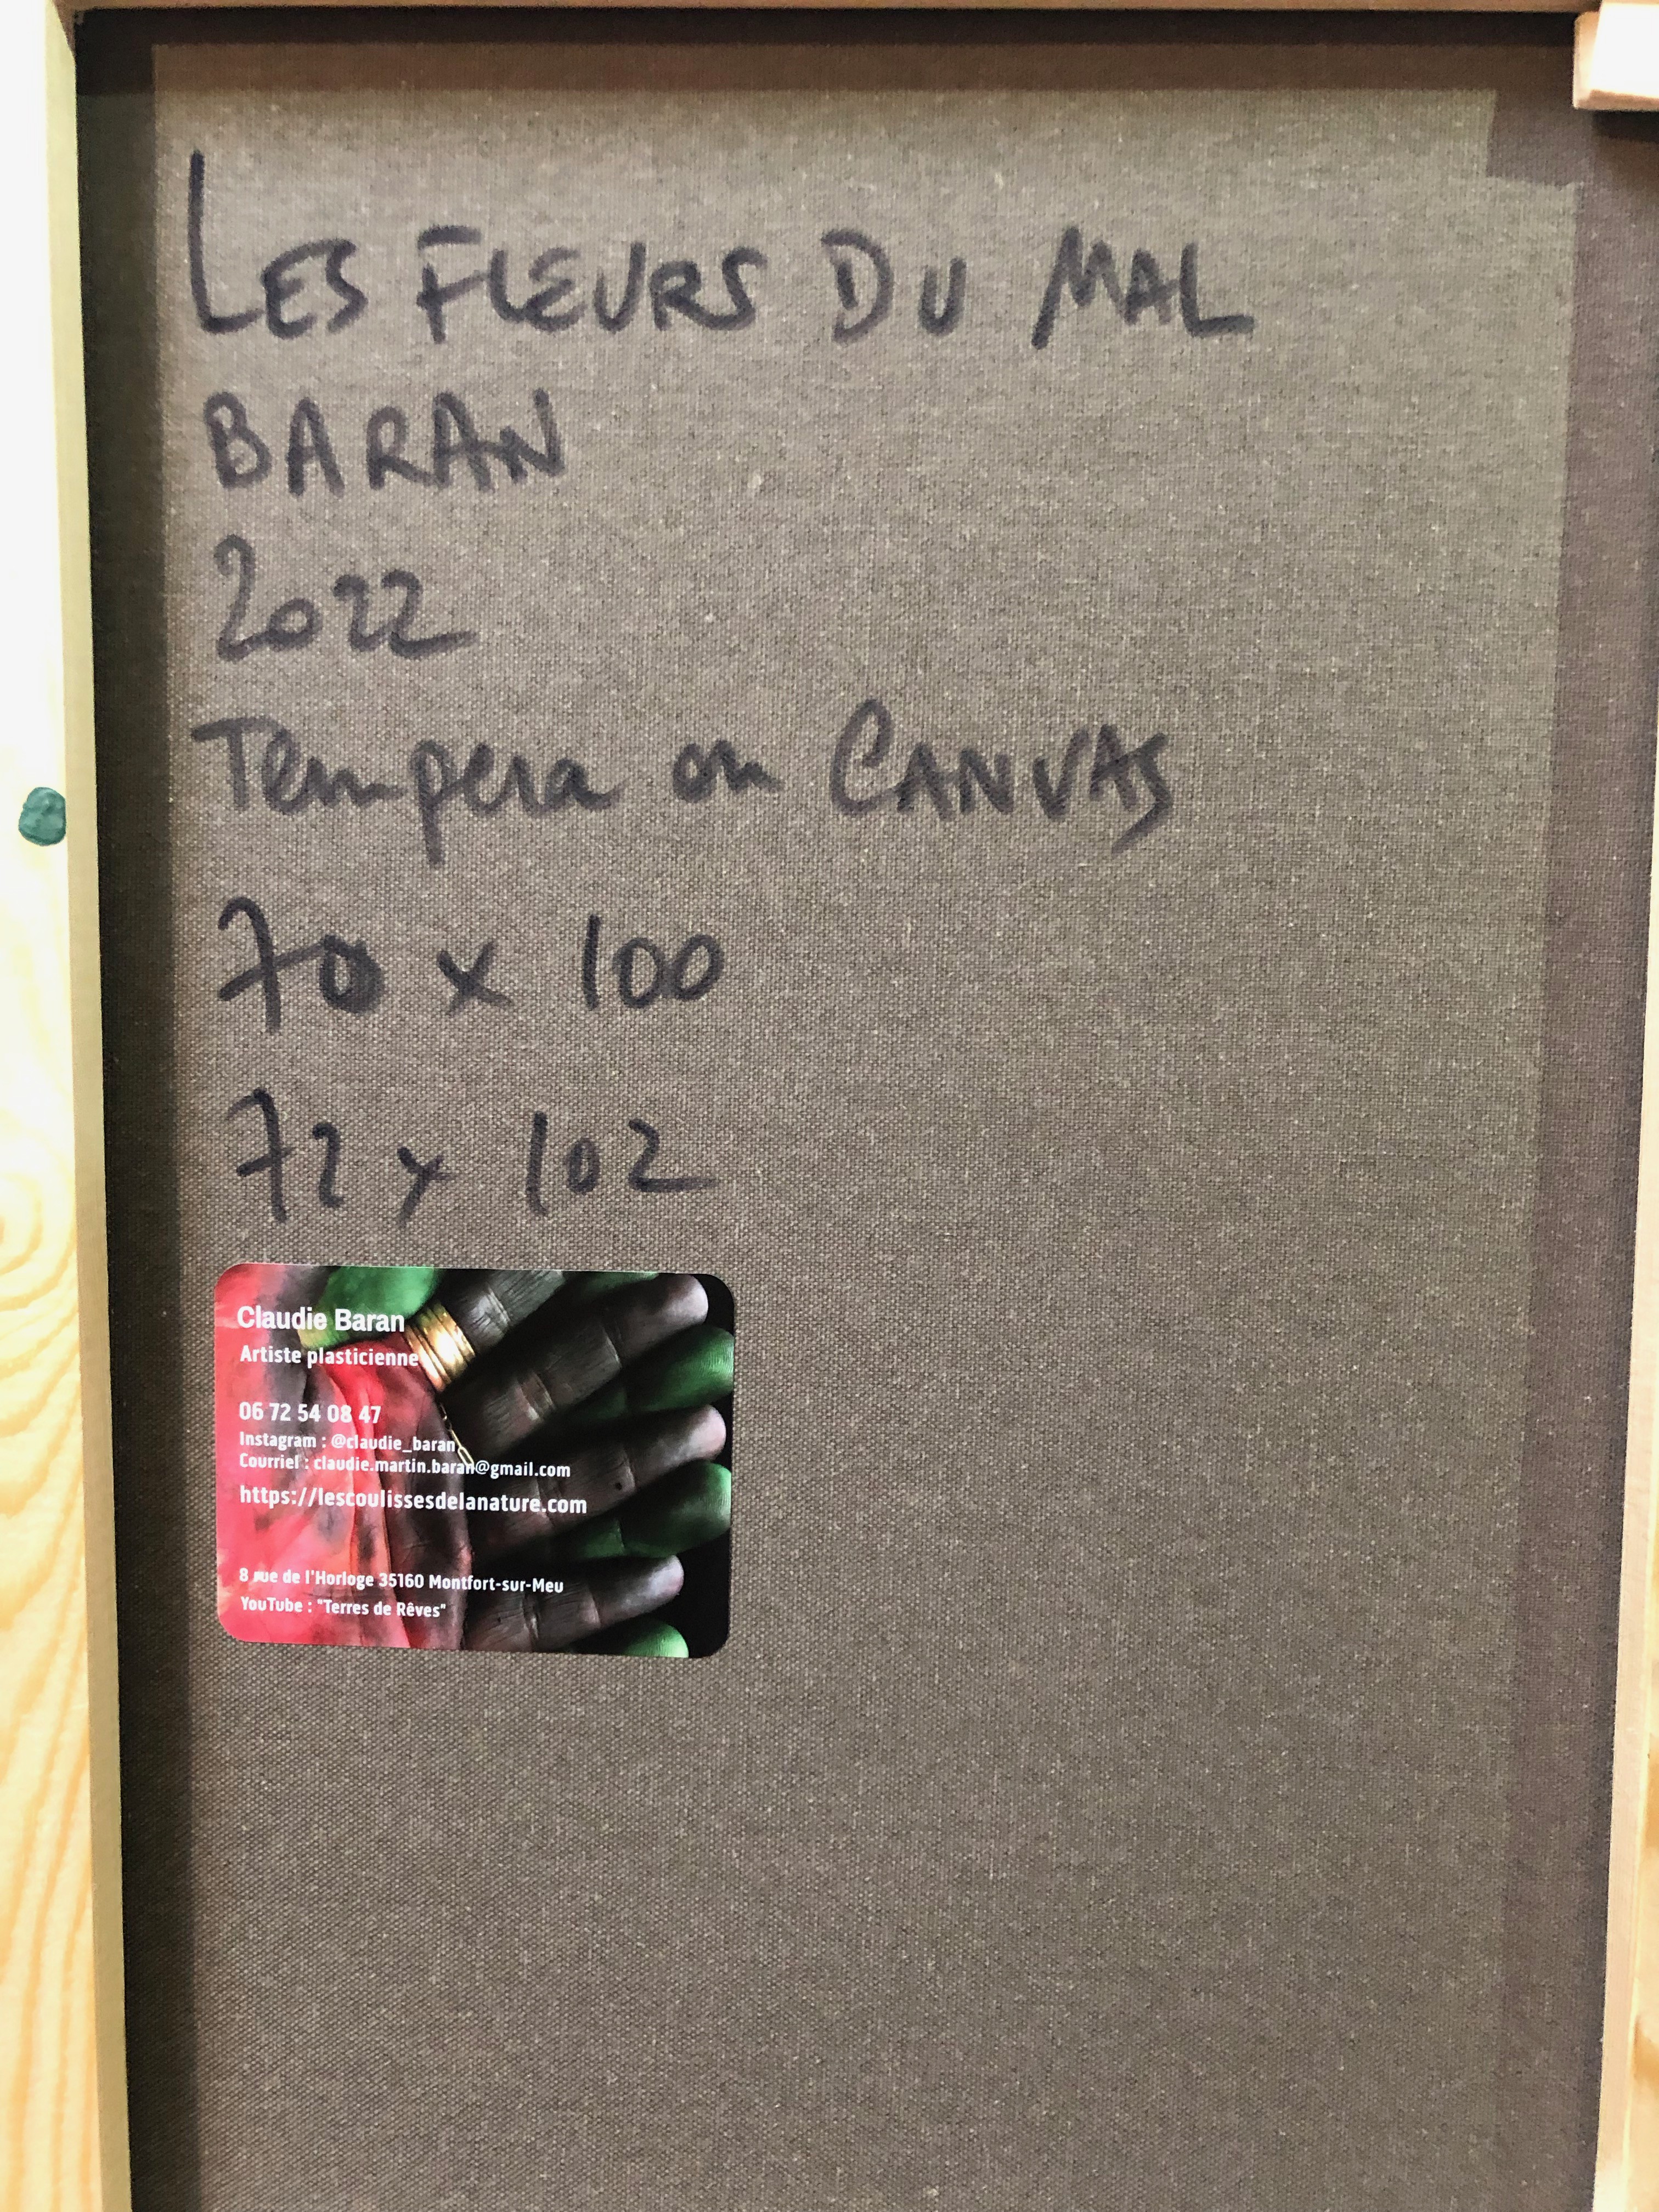 LES FLEURS DU MAL
BARAN
2022
Tempera on CANVAS
70 x 100
72 x 102
Claudie Baran
Artiste plasticienne
06 72 54 08 47
Instagram : @claudie_baran
Courriel : claudie.martin.baran@gmail.com
https://lescoulissesdelanature.com
8 rue de l'Horloge 35160 Montfort-sur-Meu
YouTube : "Terres de Rêves"